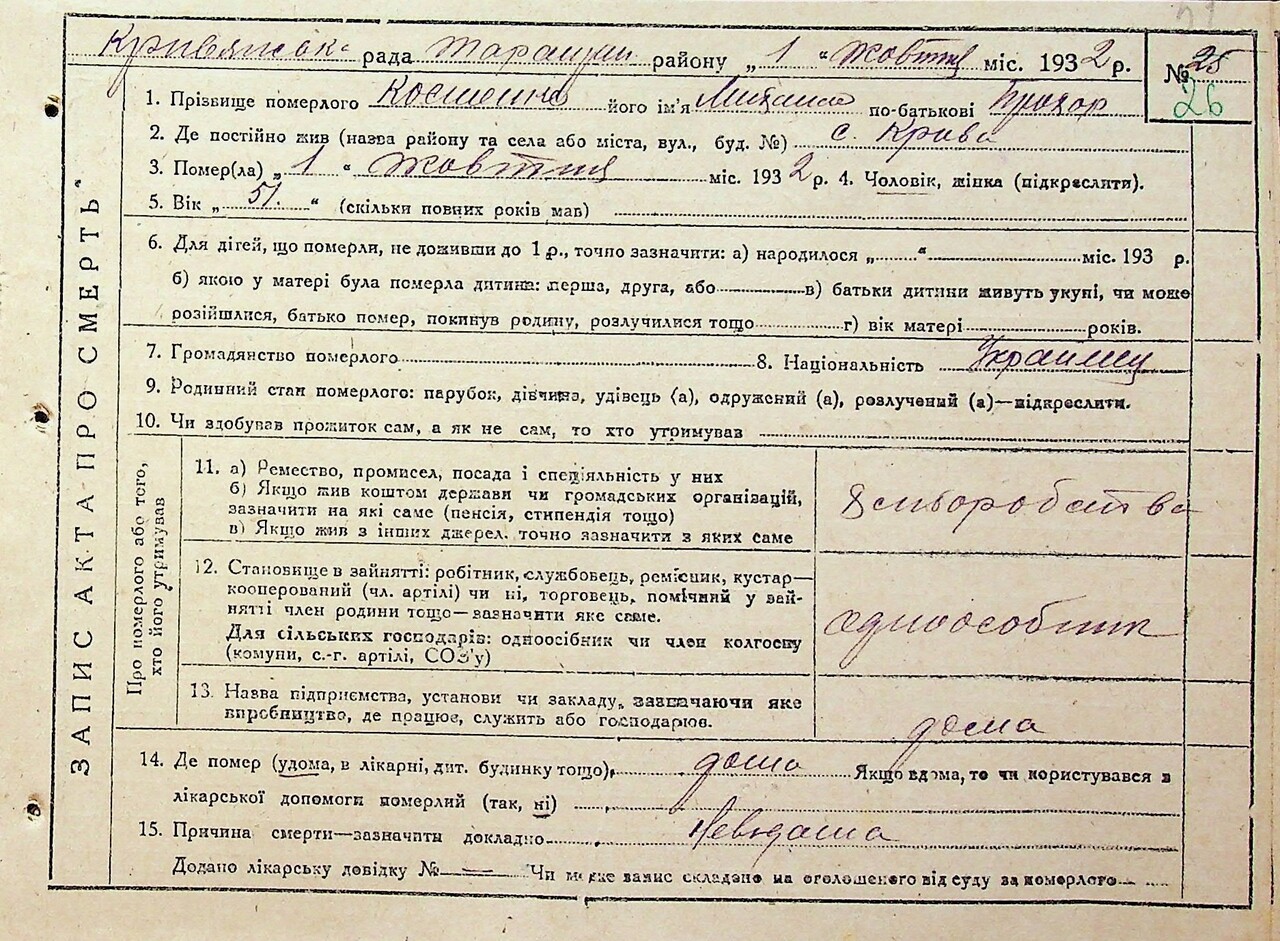 рада району „ 1 “ Жовтня міс. 1932 р. № 25
26
1. Прізвище померлого його ім'я по-батькові Прохор
2. Де постійно жив (назва району та села або міста, вул., буд. №) с. Крива
3. Помер(ла) „ 1 “ Жовтня міс. 1932 р. 4. Чоловік, жінка (підкреслити).
5. Вік „ 51. “ (скільки повних років мав)
6. Для дітей, що померли, не доживши до 1 р., точно зазначити: а) народилося „ “ міс. 193 р.
б) якою у матері була померла дитина: перша, друга, або в) батьки дитини живуть укупі, чи може
розійшлися, батько помер, покинув родину, розлучилися тощо г) вік матері років.
7. Громадянство померлого 8. Національність
9. Родинний стан померлого: парубок, дівчина, удівець (а), одружений (а), розлучений (а)—підкреслити.
10. Чи здобував прожиток сам, а як не сам, то хто утримував
ЗАПИС АКТА ПРО СМЕРТЬ
Про померлого або того,
хто його утримував
11. а) Ремество, промисел, посада і спеціяльність у них
б) Якщо жив коштом держави чи громадських організацій,
зазначити на які саме (пенсія, стипендія тощо)
в) Якщо жив з інших джерел, точно зазначити з яких саме
12. Становище в зайнятті: робітник, службовець, ремісник, кустар—
кооперований (чл. артілі) чи ні, торговець, помічний у зай-
нятті член родини тощо—зазначити яке саме.
одноособник
Для сільських господарів: одноосібник чи член колгоспу
(комуни, с.-г. артілі, СОЗ'у)
13. Назва підприємства, установи чи закладу, зазначаючи яке
виробництво, де працює, служить або господарює.
дома
14. Де помер (удома, в лікарні, дит. будинку тощо), дома Якщо вдома, то чи користувався з
лікарської допомоги померлий (так, ні)
15. Причина смерти—зазначити докладно
Додано лікарську довідку № — Чи може запис складано на оголошеного від суду за померлого